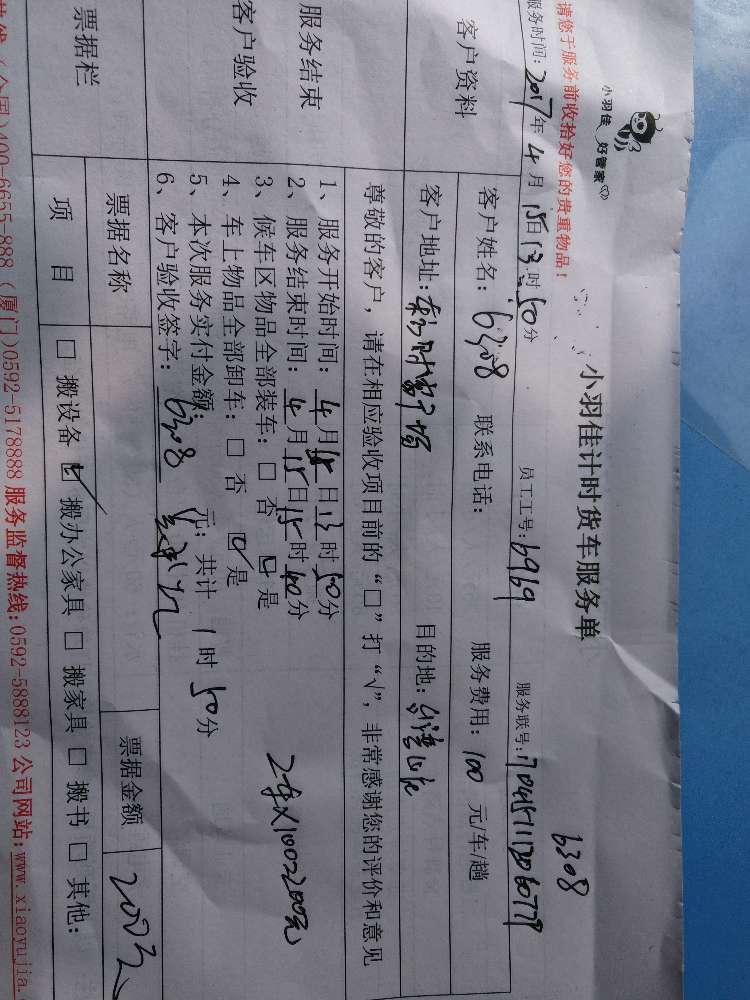 小羽佳 好管家
6308
小羽佳计时货车服务单
请您于服务前收拾好您的贵重物品！
服务时间：2017年4月15日13时50分 员工工号：6969 服务联号：
客户资料
客户姓名：6308 联系电话： 服务费用：100 元/车/趟
客户地址： 目的地：
尊敬的客户，请在相应验收项目前的“□”打“√”，非常感谢您的评价和意见
服务结束
客户验收
1、服务开始时间：4月15日13时50分
2、服务结束时间：4月15日15时40分
3、候车区物品全部装车：□ 否 ☑ 是
4、车上物品全部卸车：□ 否 ☑ 是
5、本次服务实付金额： 元；共计 1 时 50分
6、客户验收签字：6308
2车X100=200元
票据栏
票据名称 票据金额 200元
项 目 □ 搬设备 ☑ 搬办公家具 □ 搬家具 □ 搬书 □ 其他：
(全国)400-6655-888（厦门)0592-5178888 服务监督热线:0592-5888123 公司网站:www.xiaoyujia.